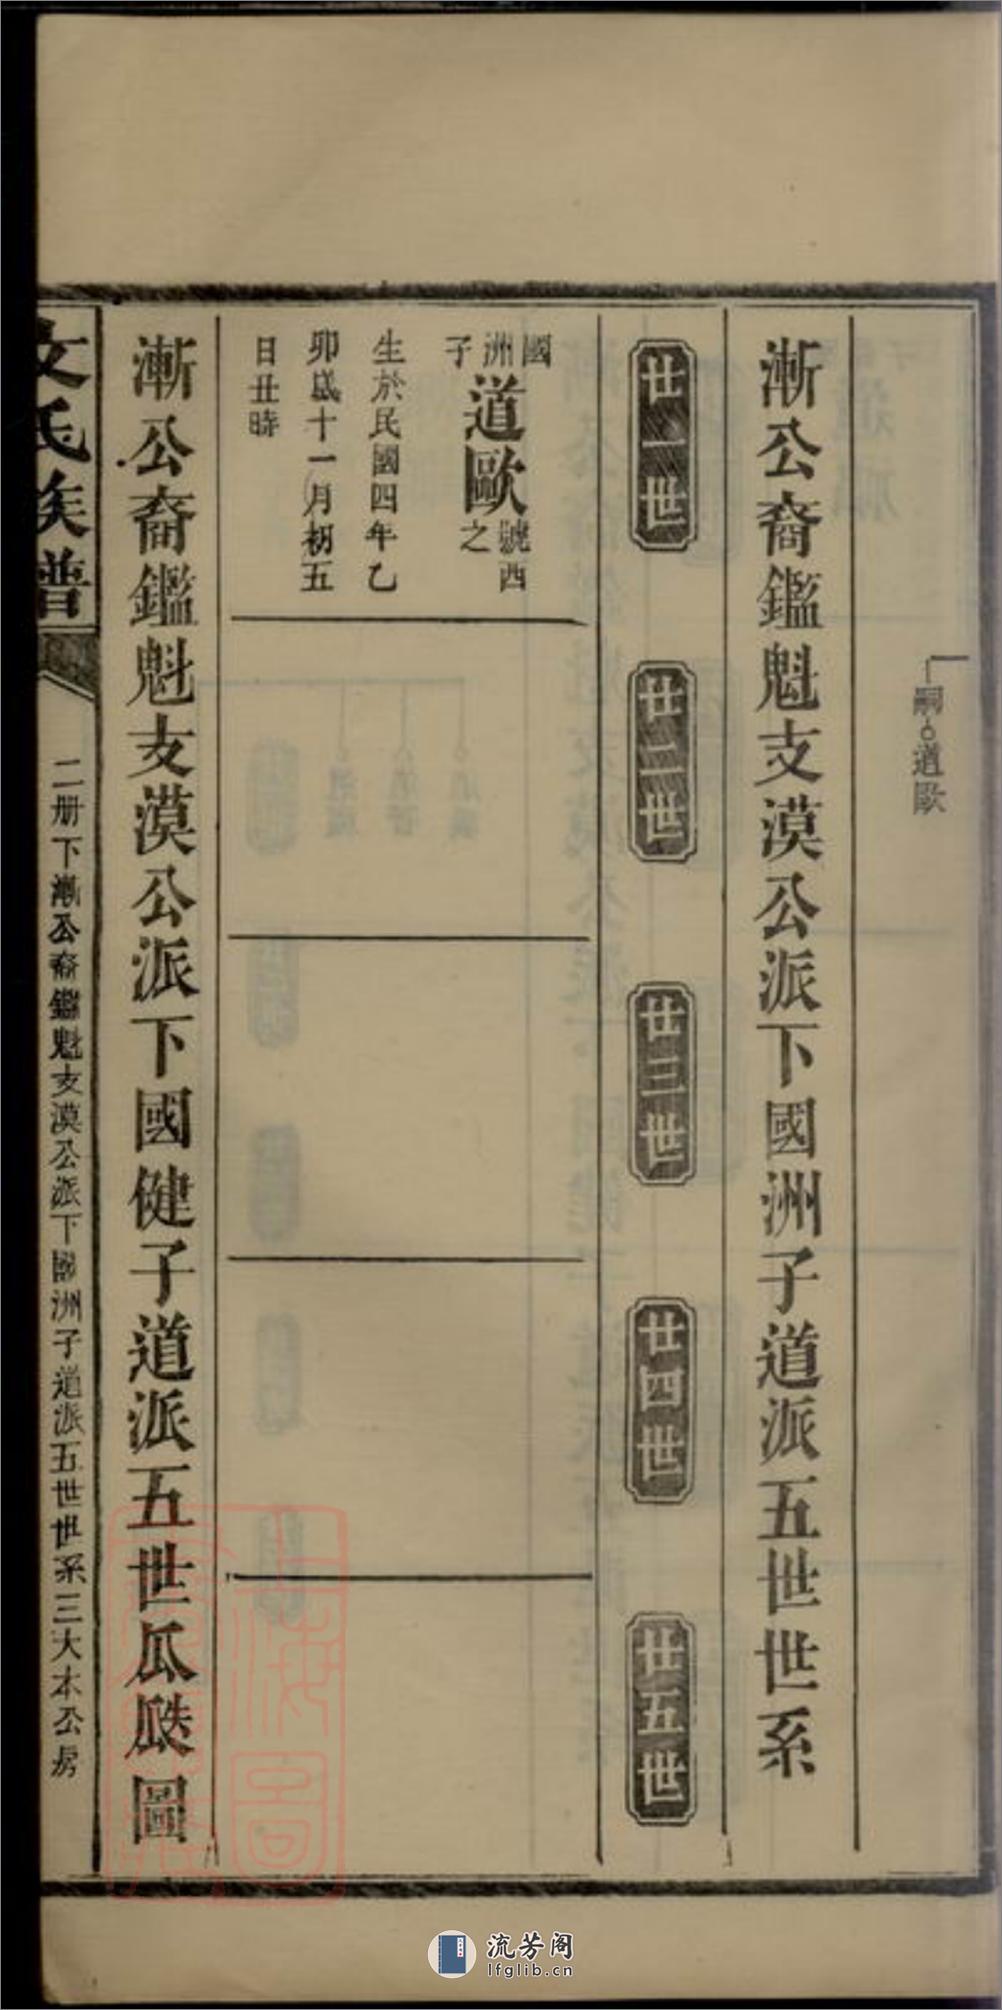 嗣道歐
漸公裔鑑魁支漠公派下國洲子道派五世世系
廿一世
廿二世
廿三世
廿四世
廿五世
國洲子
道歐
號西之
生於民國四年乙
卯歲十一月初五
日丑時
漸公裔鑑魁支漠公派下國健子道派五世瓜瓞圖
文氏族譜
二册下漸公裔鑑魁支漠公派下國洲子道派五世世系三大本公房
上海圖
流芳阁
lfglib.cn